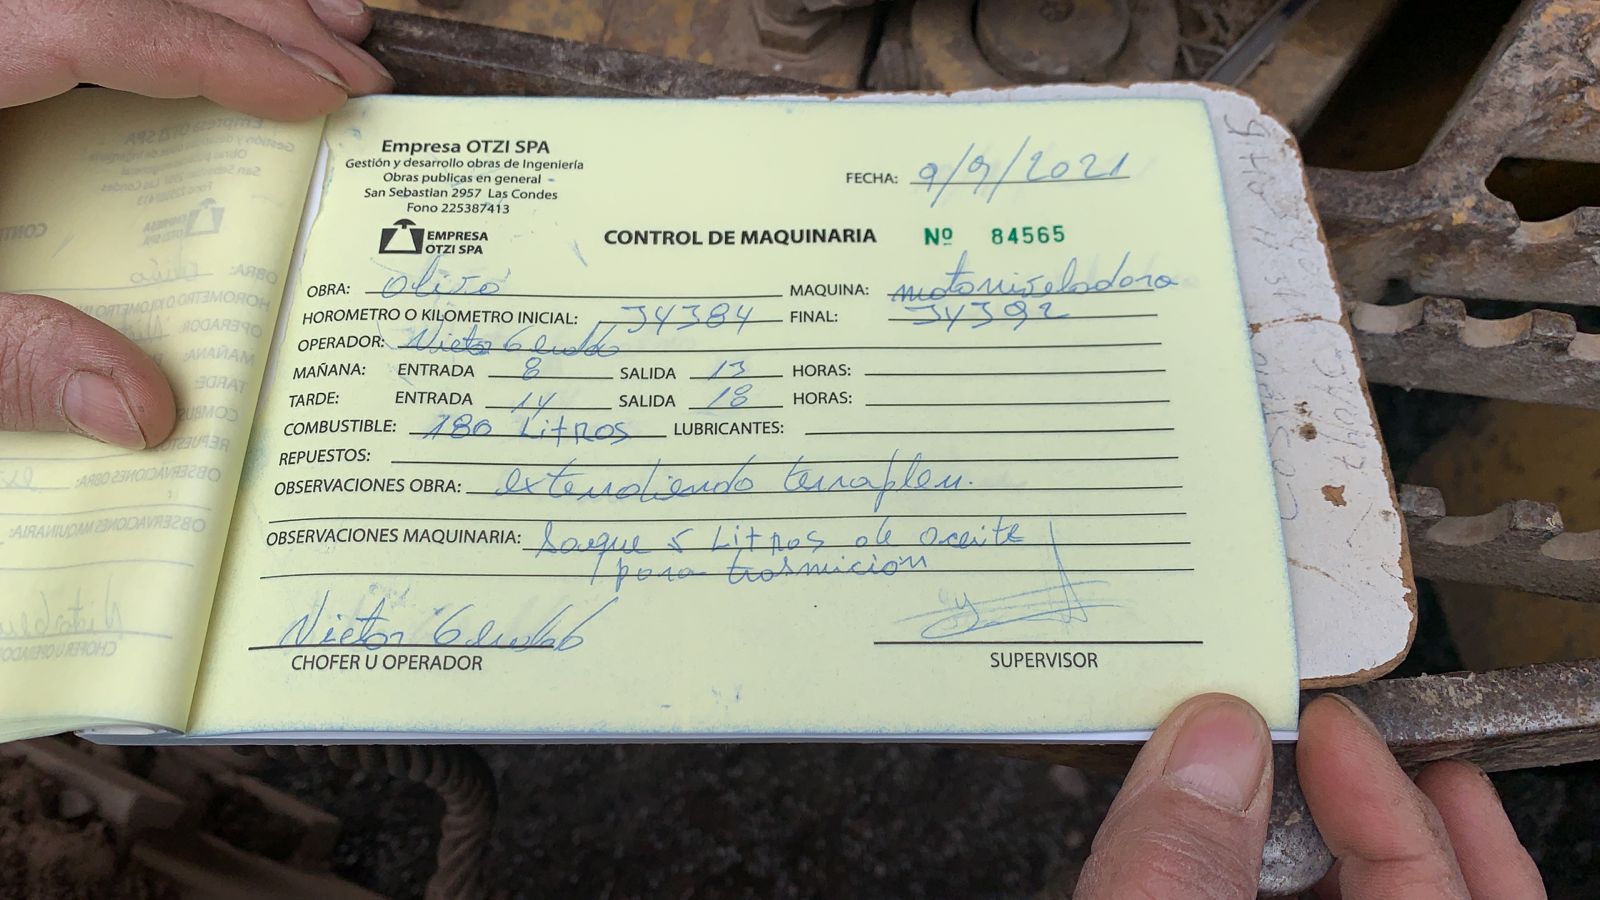 Empresa OTZI SPA
Gestión y desarrollo obras de Ingeniería
Obras publicas en general
San Sebastian 2957 Las Condes
Fono 225387413
EMPRESA
OTZI SPA
FECHA: 9/9/2021
CONTROL DE MAQUINARIA Nº 84565
OBRA: MAQUINA: motoniveladora
HOROMETRO O KILOMETRO INICIAL: 34384 FINAL: 34392
OPERADOR:
MAÑANA: ENTRADA 8 SALIDA 13 HORAS:
TARDE: ENTRADA 14 SALIDA 18 HORAS:
COMBUSTIBLE: 180 Litros LUBRICANTES:
REPUESTOS:
OBSERVACIONES OBRA: extendiendo terraplen.
OBSERVACIONES MAQUINARIA: Saque 5 Litros de aceite
para trasmicion
CHOFER U OPERADOR
SUPERVISOR